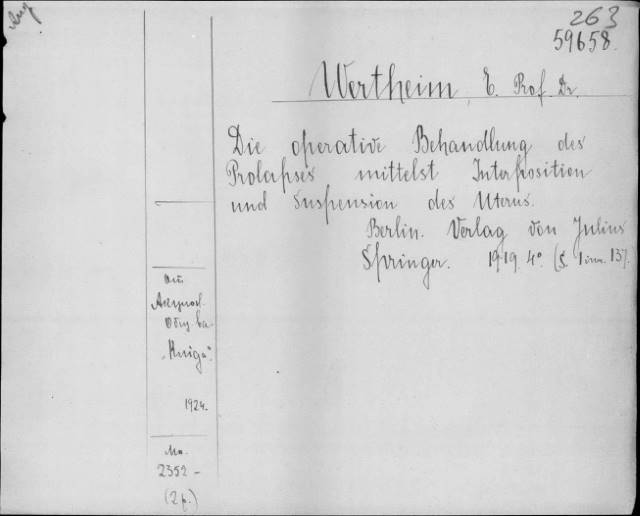 263
59658.
Wertheim, E. Prof. Dr.
Die operative Behandlung des
Prolapses mittelst Interposition
und Suspension des Uterus.
Berlin. Verlag von Julius
Springer. 1919. 4° (S. 1 inn. 137.
От
Акционерн.
Общ-ва
„Книга“.
1924.
Мк.
2352 -
(2 р.)